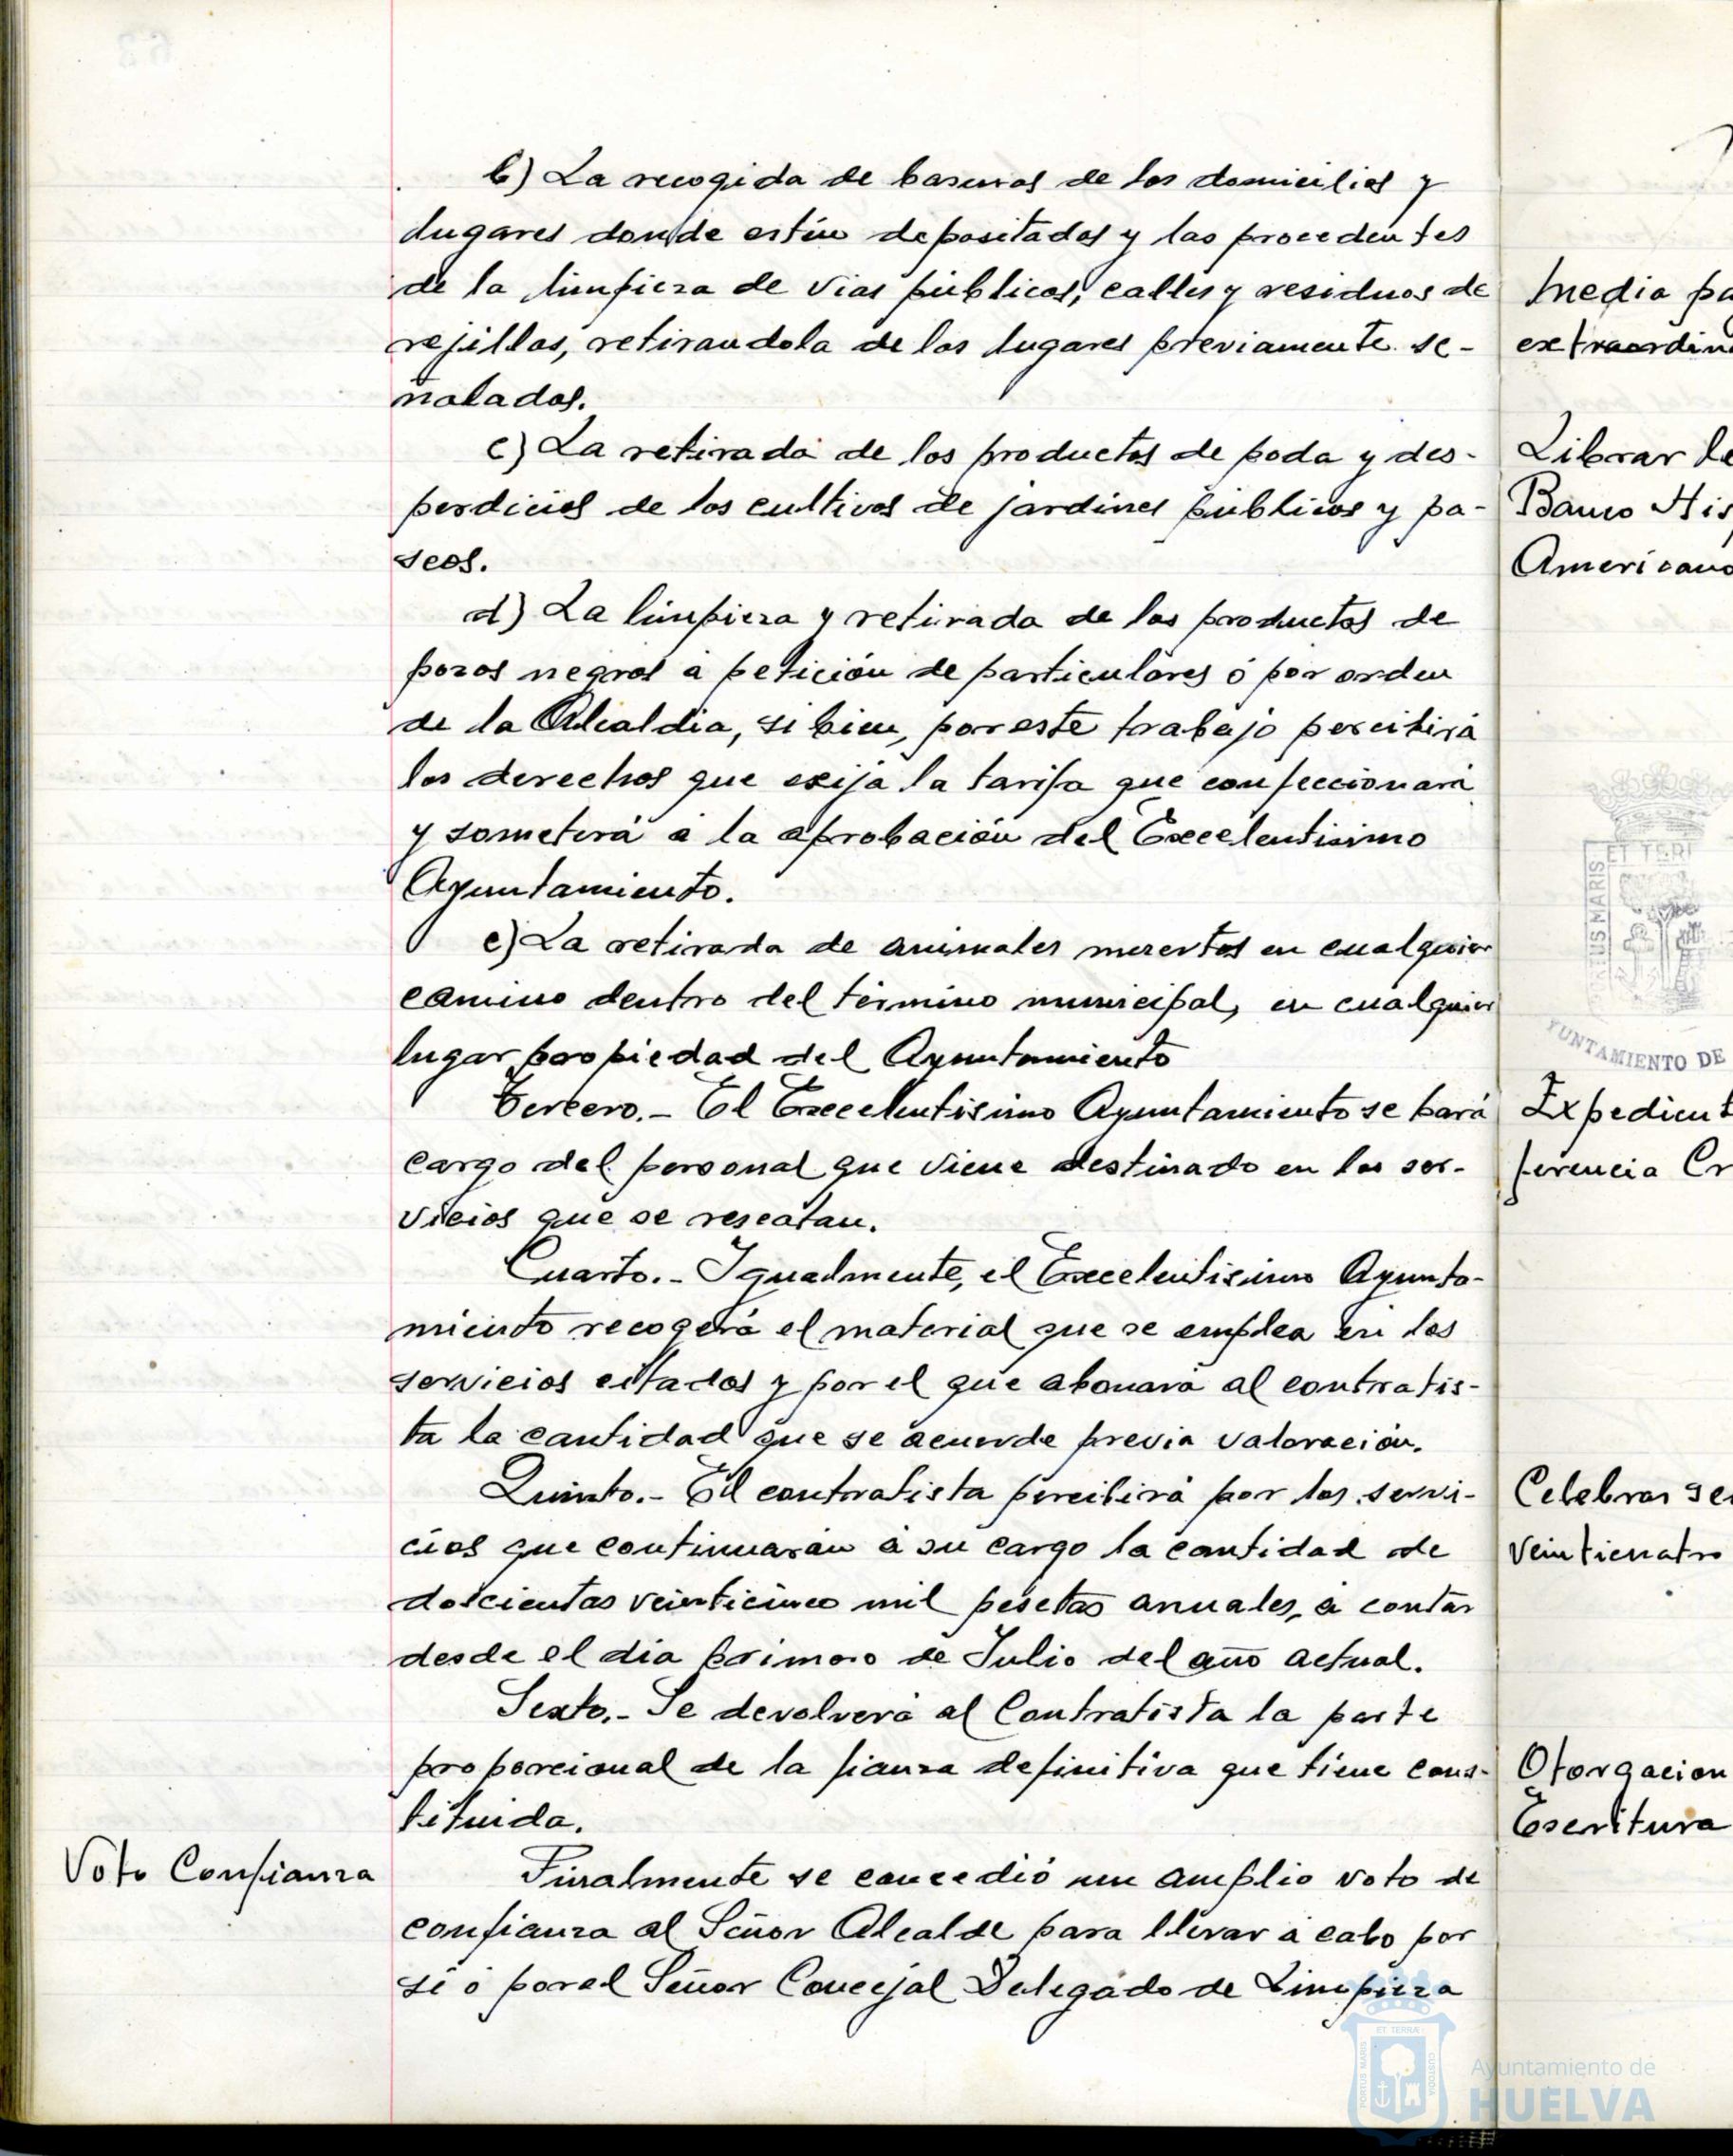 b) La recogida de basuras de los domicilios y
lugares donde estén depositados y las procedentes
de la limpieza de vias públicas, calles y residuos de
rejillas, retirandola de los lugares previamente se-
ñalados.
c) La retirada de los productos de poda y des-
perdicios de los cultivos de jardines públicos y pa-
seos.
d) La limpieza y retirada de los productos de
pozos negros á petición de particulares ó por orden
de la Alcaldia, si bien, por este trabajo percibirá
los derechos que exija la tarifa que confeccionará
y someterá á la aprobación del Excelentisimo
Ayuntamiento.
e) La retirada de animales muertos en cualquier
camino dentro del término municipal, en cualquier
lugar propiedad del Ayuntamiento
Tercero.- El Excelentisimo Ayuntamiento se hará
cargo del personal que viene destinado en los ser-
vicios que se rescatan.
Cuarto.- Igualmente, el Excelentisimo Ayunta-
miento recogerá el material que se emplea en los
servicios citados y por el que abonará al contratis-
ta la cantidad que se acuerde previa valoración.
Quinto.- El contratista percibirá por los servi-
cios que continuarán á su cargo la cantidad de
doscientas veinticinco mil pesetas anuales, á contar
desde el dia primero de Julio del año actual.
Sexto.- Se devolverá al Contratista la parte
proporcional de la fianza definitiva que tiene cons-
tituida.
Voto Confianza
Finalmente se concedió un amplio voto de
confianza al Señor Alcalde para llevar á cabo por
sí ó por el Señor Concejal Delegado de Limpieza
media pa
extraordin
Librar le
Banco His
Americano
ET TERR
US MARIS
YUNTAMIENTO DE
Expedient
ferencia Cr
Celebrar se
veinticuatro
Otorgacion
Escritura
PORTUS MARIS
ET TERRA
CUSTODIA
Ayuntamiento de
HUELVA